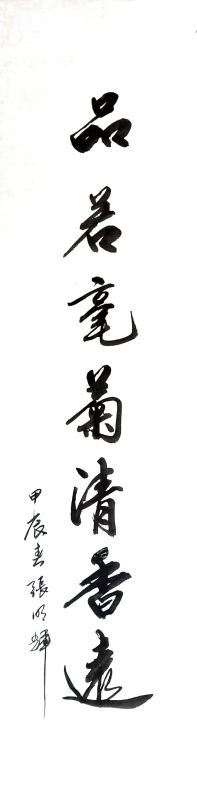 品若毫菊清香遠
甲辰春張明輝